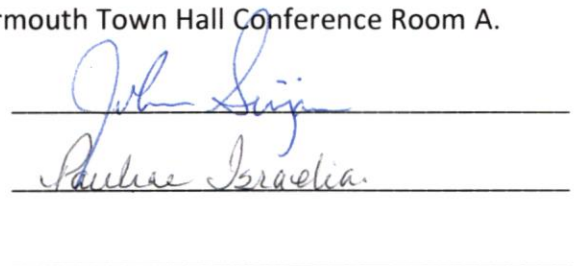 rmouth Town Hall Conference Room A.
John
Pauline Israelian